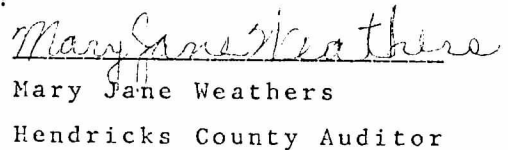 Mary Jane Weathers
Mary Jane Weathers
Hendricks County Auditor